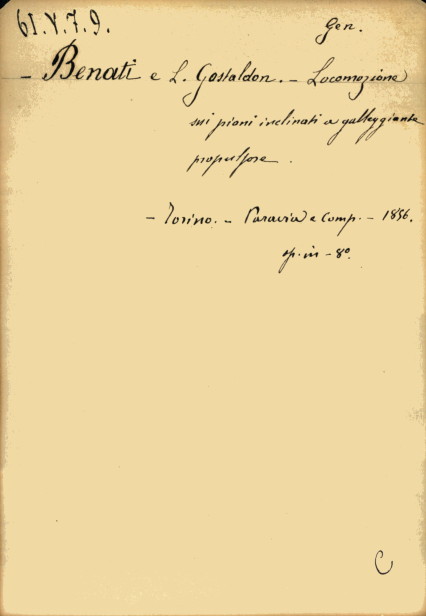 61.V.7.9.
Gen.
- Benati e L. Gostaldon. - Locomozione
sui piani inclinati a galleggiante
propulsore.
- Torino. - Paravia e Comp. - 1856.
op. in - 8º.
C